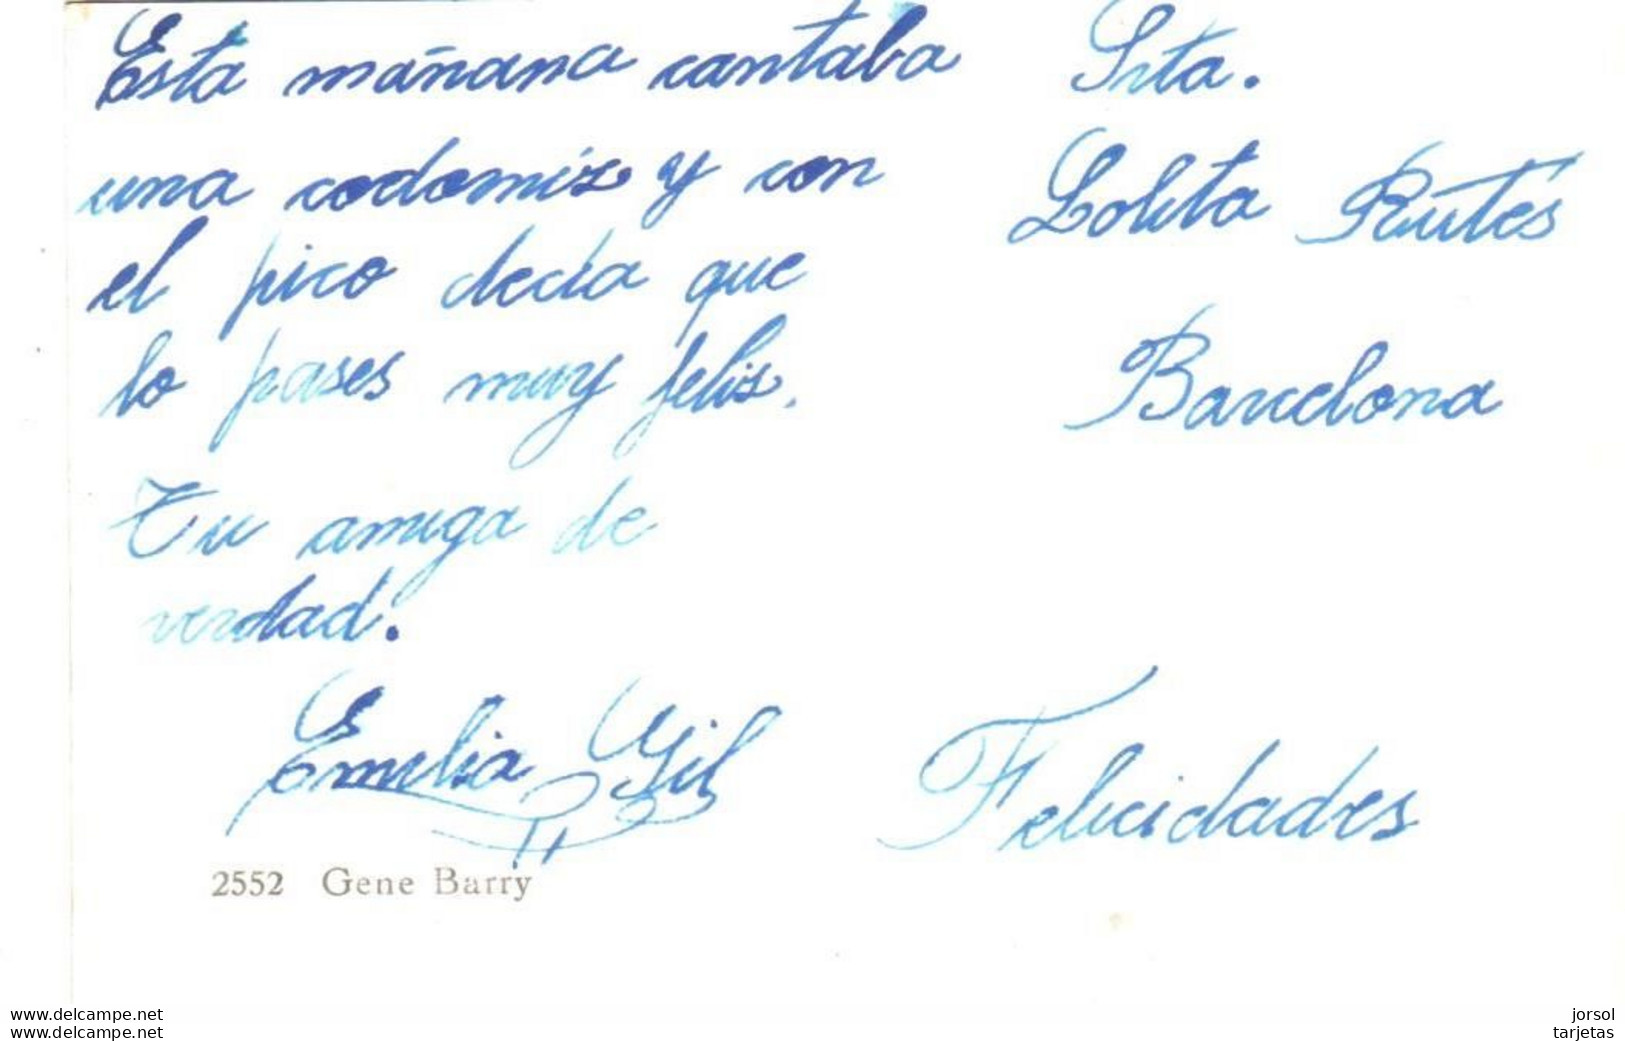 Esta mañana cantaba
una codorníz y con
el pico decía que
lo pases muy feliz.
Tu amiga de
verdad.
Emilia Gil
2552 Gene Barry
Srta.
Lolita Rutés
Barcelona
Felicidades
www.delcampe.net
www.delcampe.net
jorsol
tarjetas